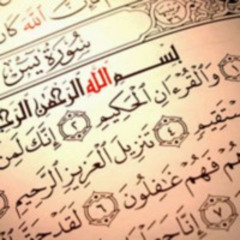 الله
سورة يس
بسم الله الرحمن الرحيم
وَالْقُرْءَانِ الْحَكِيمِ ٢ إِنَّكَ لَمِنَ
مُسْتَقِيمٍ ٤ تَنزِيلَ الْعَزِيزِ الرَّحِيمِ
فَهُمْ غَٰفِلُونَ ٦ لَقَدْ حَقَّ
٧ إِنَّا جَعَلْنَا